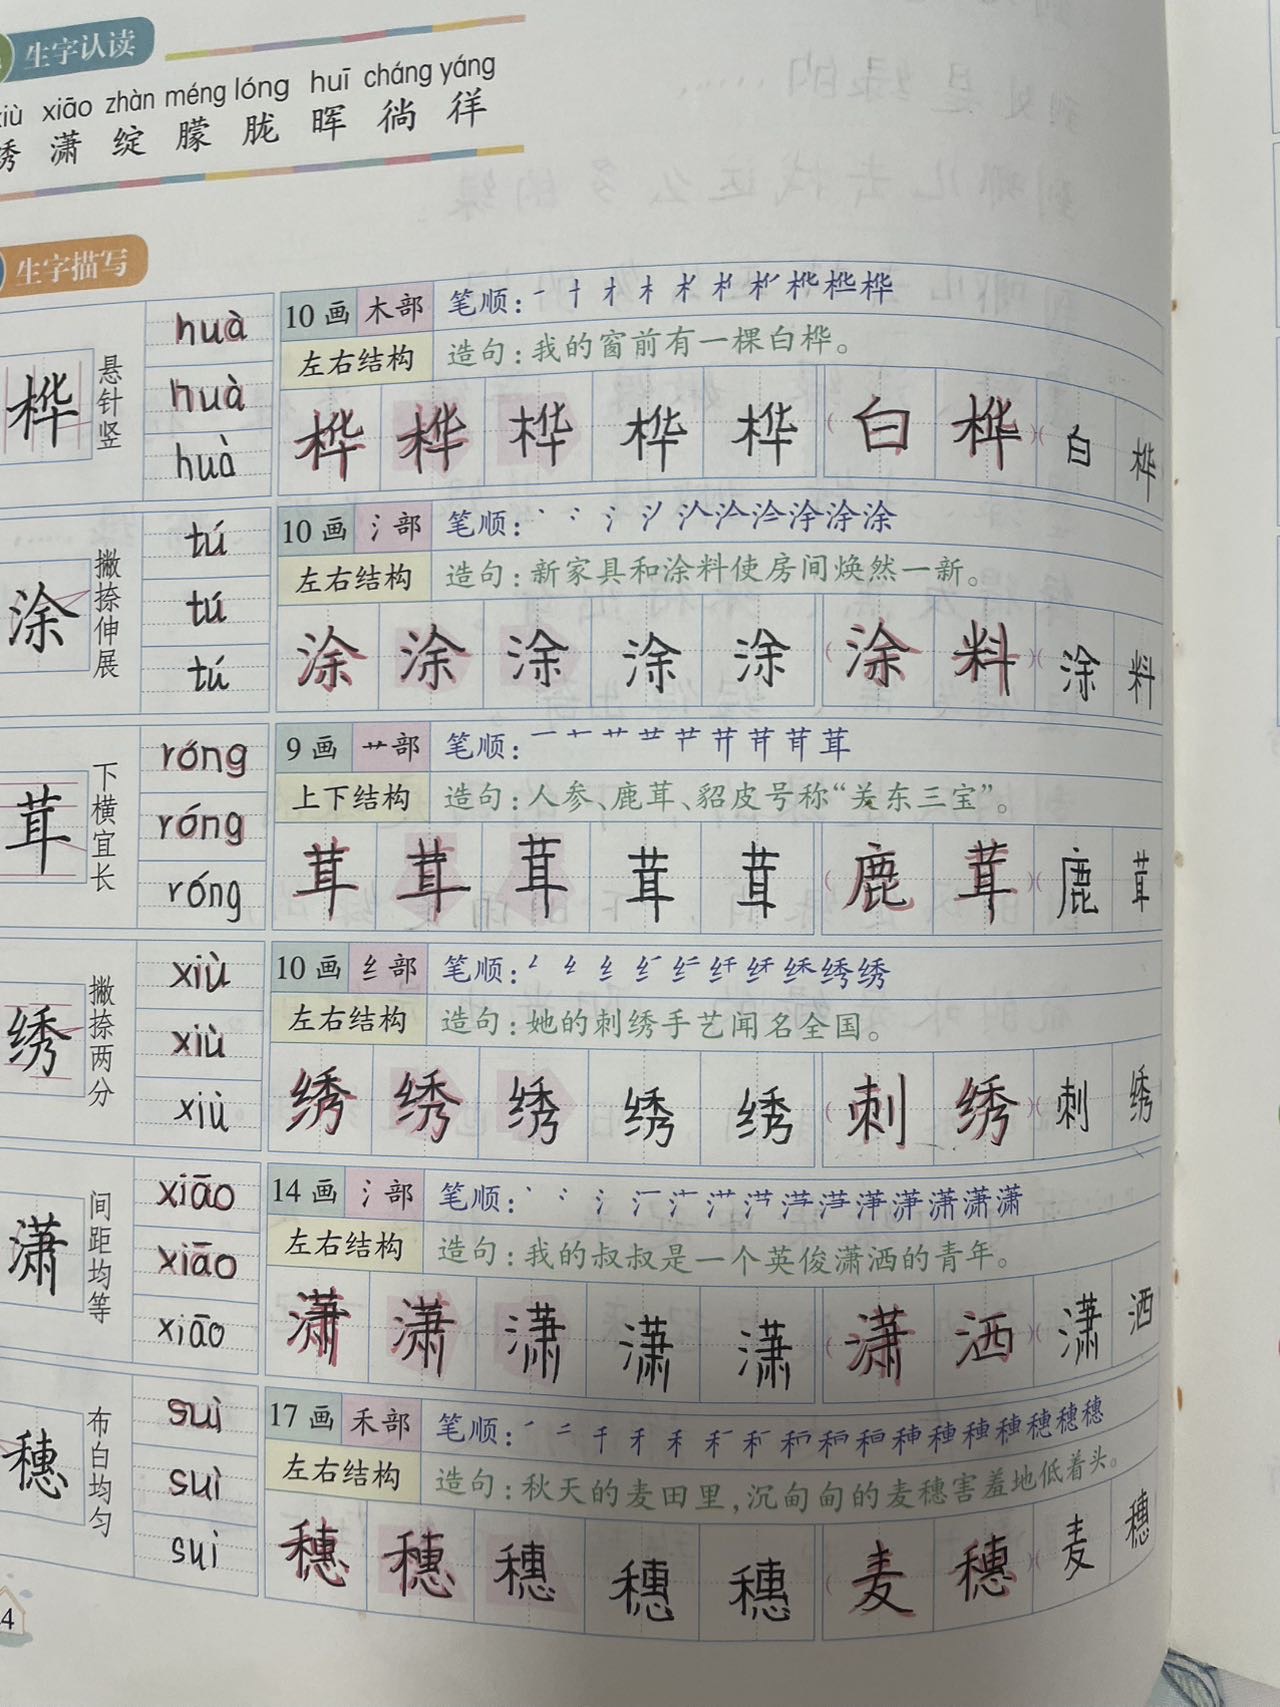 生字认读
xiāo zhàn méng lóng huī cháng yáng
绣 潇 绽 朦 胧 晖 徜 徉
生字描写
桦 悬针竖
huà
huà
huà
10画 木部 笔顺:
左右结构 造句:我的窗前有一棵白桦。
桦 桦 桦 桦 桦 (白桦)(白桦
涂 撇捺伸展
tú
tú
tú
10画 氵部 笔顺:
左右结构 造句:新家具和涂料使房间焕然一新。
涂 涂 涂 涂 涂 (涂料)(涂料
茸 下横宜长
róng
róng
róng
9画 艹部 笔顺:
上下结构 造句:人参、鹿茸、貂皮号称“关东三宝”。
茸 茸 茸 茸 茸 (鹿茸)(鹿茸
绣 撇捺两分
xiù
xiù
xiù
10画 纟部 笔顺:
左右结构 造句:她的刺绣手艺闻名全国。
绣 绣 绣 绣 绣 (刺绣)(刺绣
潇 间距均等
xiāo
xiāo
xiāo
14画 氵部 笔顺:
左右结构 造句:我的叔叔是一个英俊潇洒的青年。
潇 潇 潇 潇 潇 (潇洒)(潇洒
穗 布白均匀
suì
suì
suì
17画 禾部 笔顺:
左右结构 造句:秋天的麦田里,沉甸甸的麦穗害羞地低着头。
穗 穗 穗 穗 穗 (麦穗)(麦穗
4